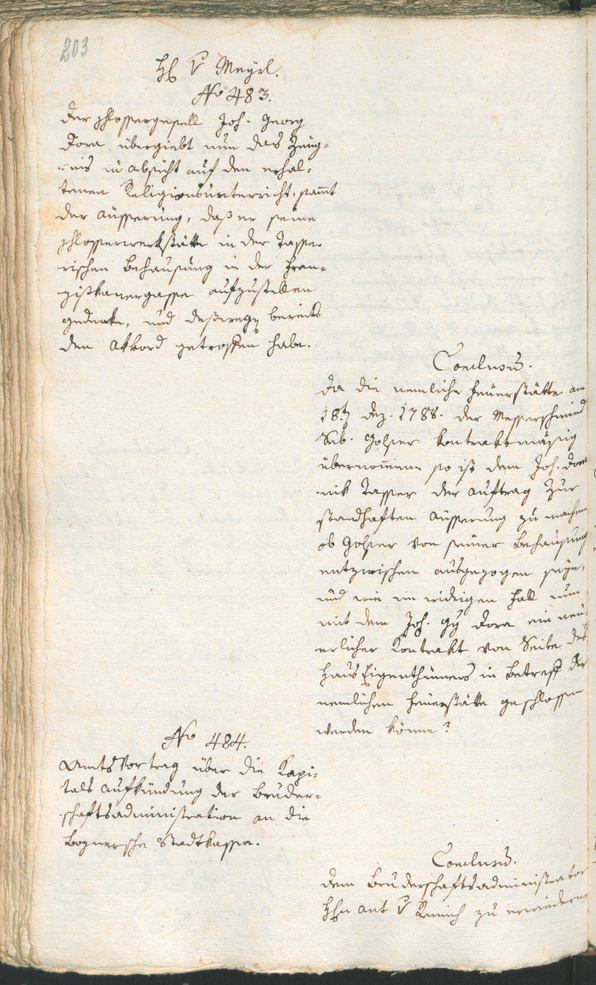 203
H. v Meyrl.
No 483.
Der Schlossergesell Joh. Georg
Dora übergiebt nun das Zeug-
nis in absicht auf den erhal-
tenen Religionsunterricht, samt
der äusserung, daß er seine
schlosserwerkstätte in der Tasse-
rischen Behausung in der Fran-
ziskanergasse aufzustellen
gedenke, und deßwegen bereits
den Akkord getroffen habe.
Conclusum.
Da die nemliche Feuerstätte am
18t Dez. 1788. der Messerschmied
Seb. Golser kontraktmäsig
übernommen so ist dem Joh. Dom-
nik Tasser der auftrag zur
standhaften äusserung zu machen
ob Golser von seiner Behausung
entzwischen ausgezogen seye,
und wie im widrigen Fall nun
mit dem Joh. Gg Dora ein neu-
erlicher Kontrakt von Seite des
Haus Eigenthümers in Betreff der
nemlichen Feuerstätte geschlossen
werden könne?
No 484.
Amts Vortrag über die Kapi-
tals aufkündung der Bruder-
schaftsadministration an die
Bognersche Stadtkassa.
Conclusum.
dem Bruderschaftsadministrator
Hhn ant v zu erwiedern